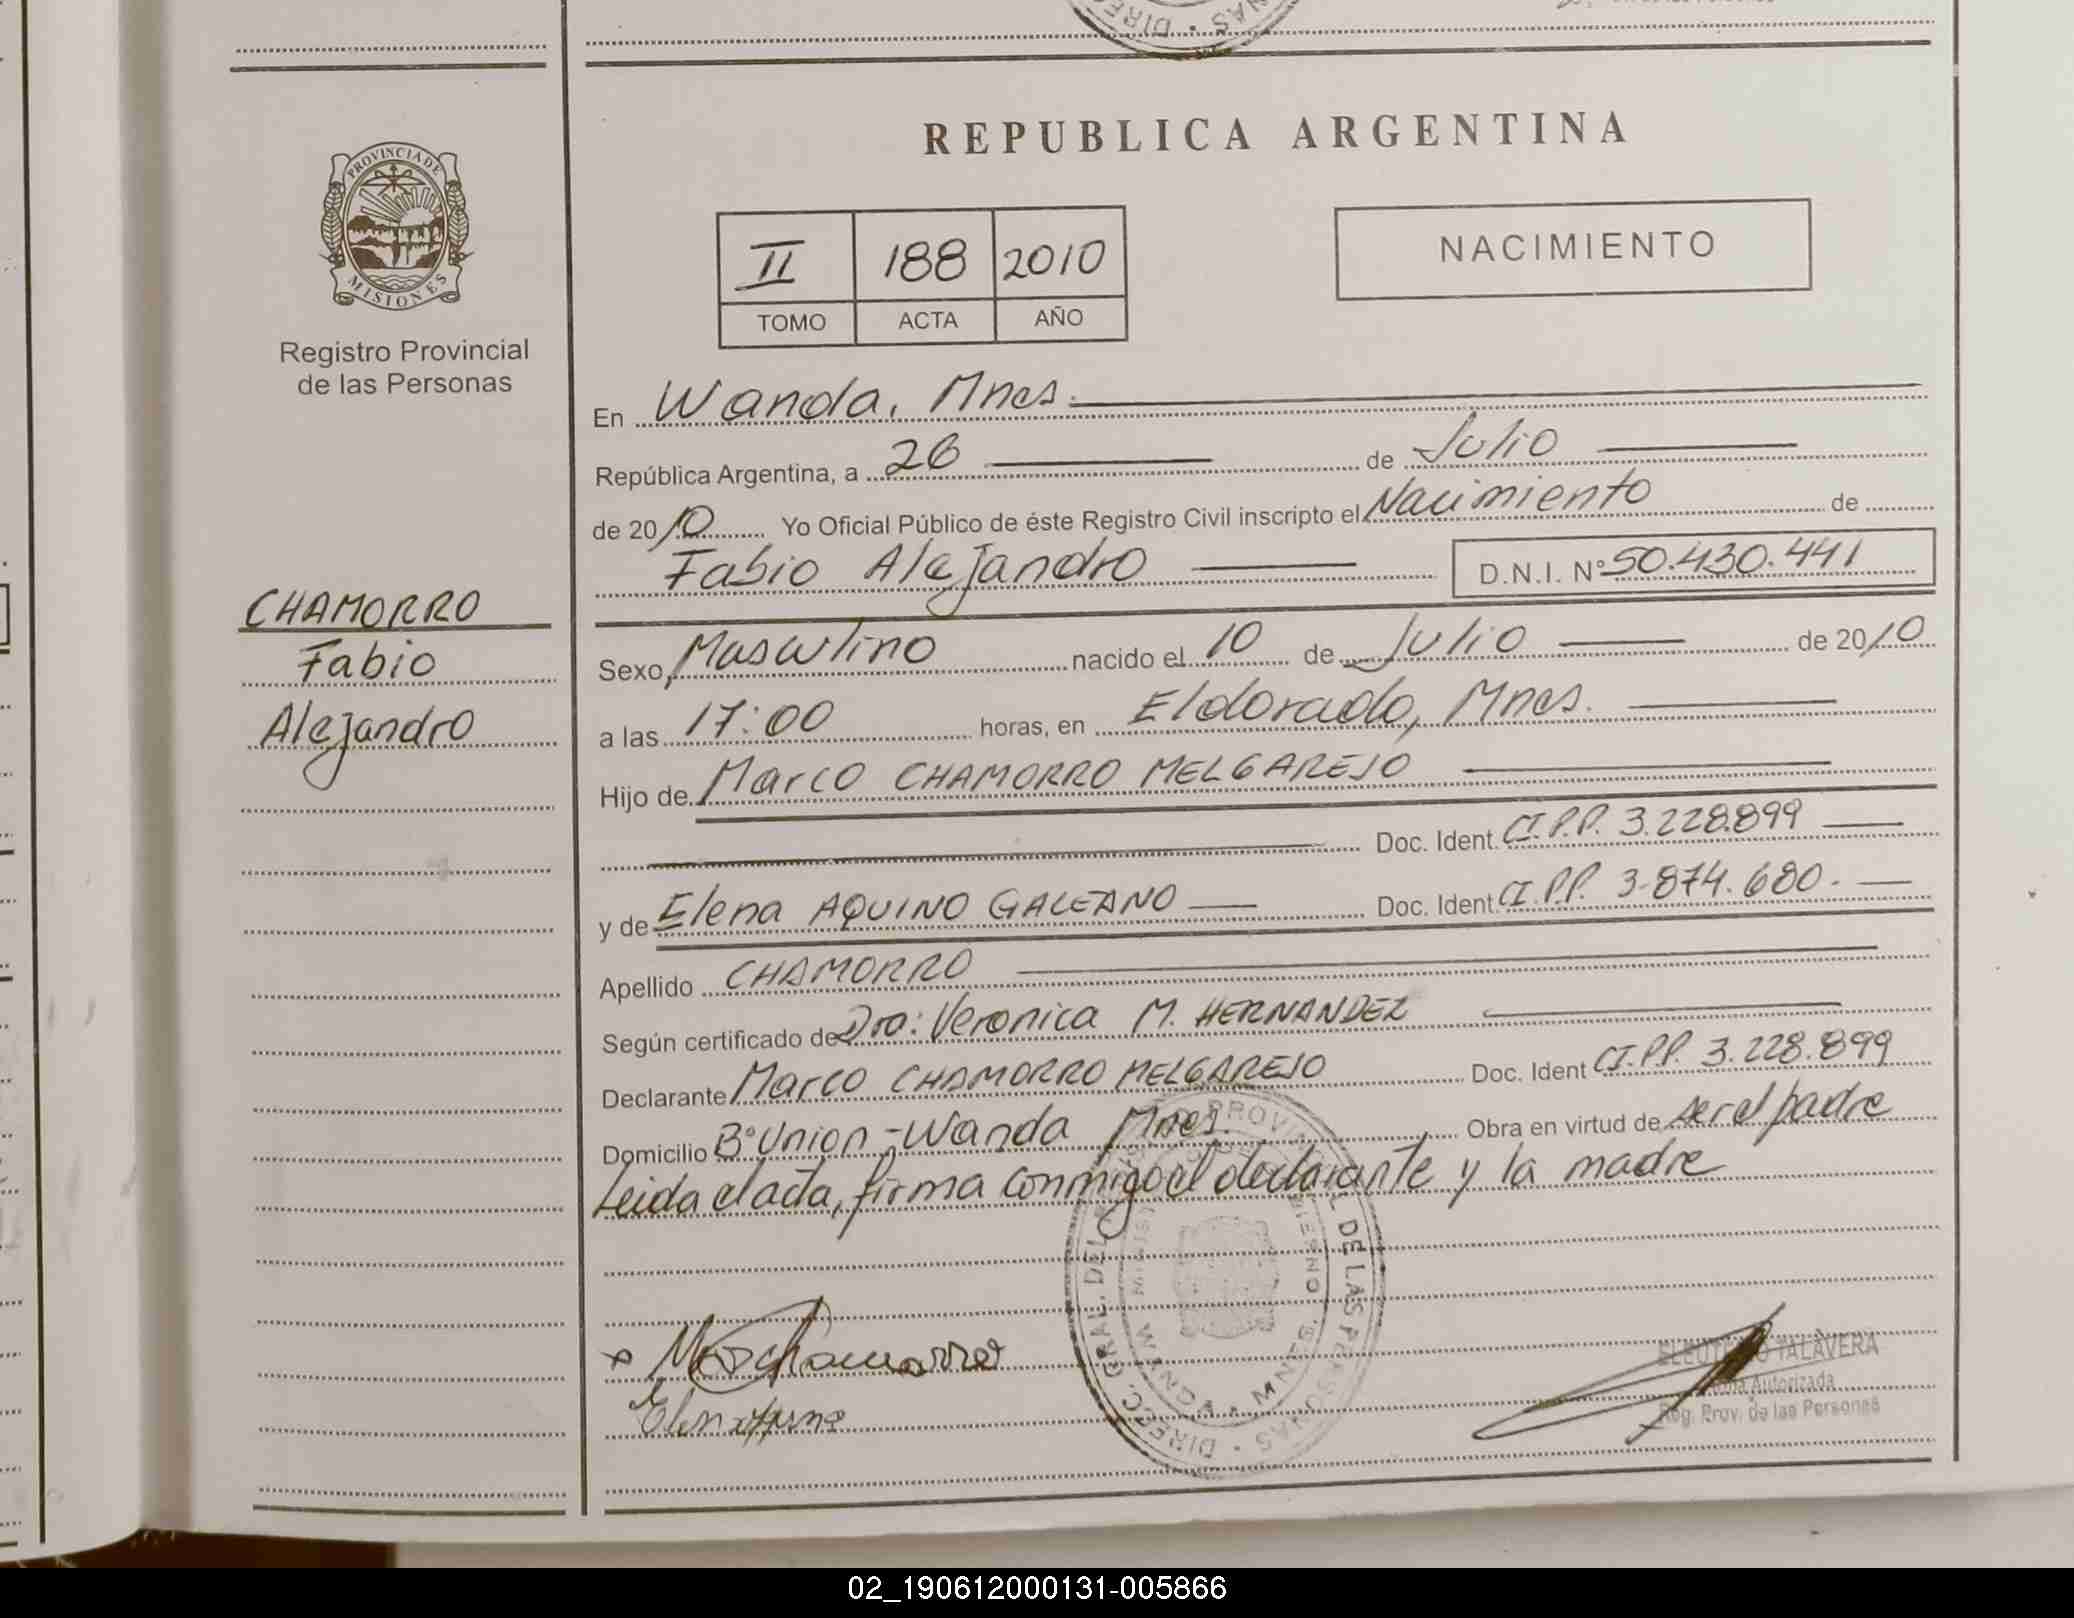 REPUBLICA ARGENTINA
PROVINCIA DE
MISIONES
Registro Provincial
de las Personas
II 188 2010
TOMO ACTA AÑO
NACIMIENTO
CHAMORRO
Fabio
Alejandro
En Wanda, Mnes.
República Argentina, a 26 de Julio
de 2010 Yo Oficial Público de éste Registro Civil inscripto el Nacimiento de
Fabio Alejandro D.N.I. Nº 50.430.441
Sexo Masculino nacido el 10 de Julio de 2010
a las 17:00 horas, en Eldorado, Mnes.
Hijo de Marco CHAMORRO MELGAREJO
Doc. Ident. CI.P.P. 3.228.899
y de Elena AQUINO GALEANO Doc. Ident. CI.P.P. 3.874.680.
Apellido CHAMORRO
Según certificado de Dra: Veronica M. HERNANDEZ
Declarante Marco CHAMORRO MELGAREJO Doc. Ident CI.P.P. 3.228.899
Domicilio Bº Union - Wanda Mnes. Obra en virtud de ser el padre
Leida el acta, firma conmigo el declarante y la madre
DIREC. GRAL. DEL PROVINCIAL DE LAS PERSONAS
WANDA MNES.
TALAVERA
Autorizada
Reg. Prov. de las Personas
02_190612000131-005866